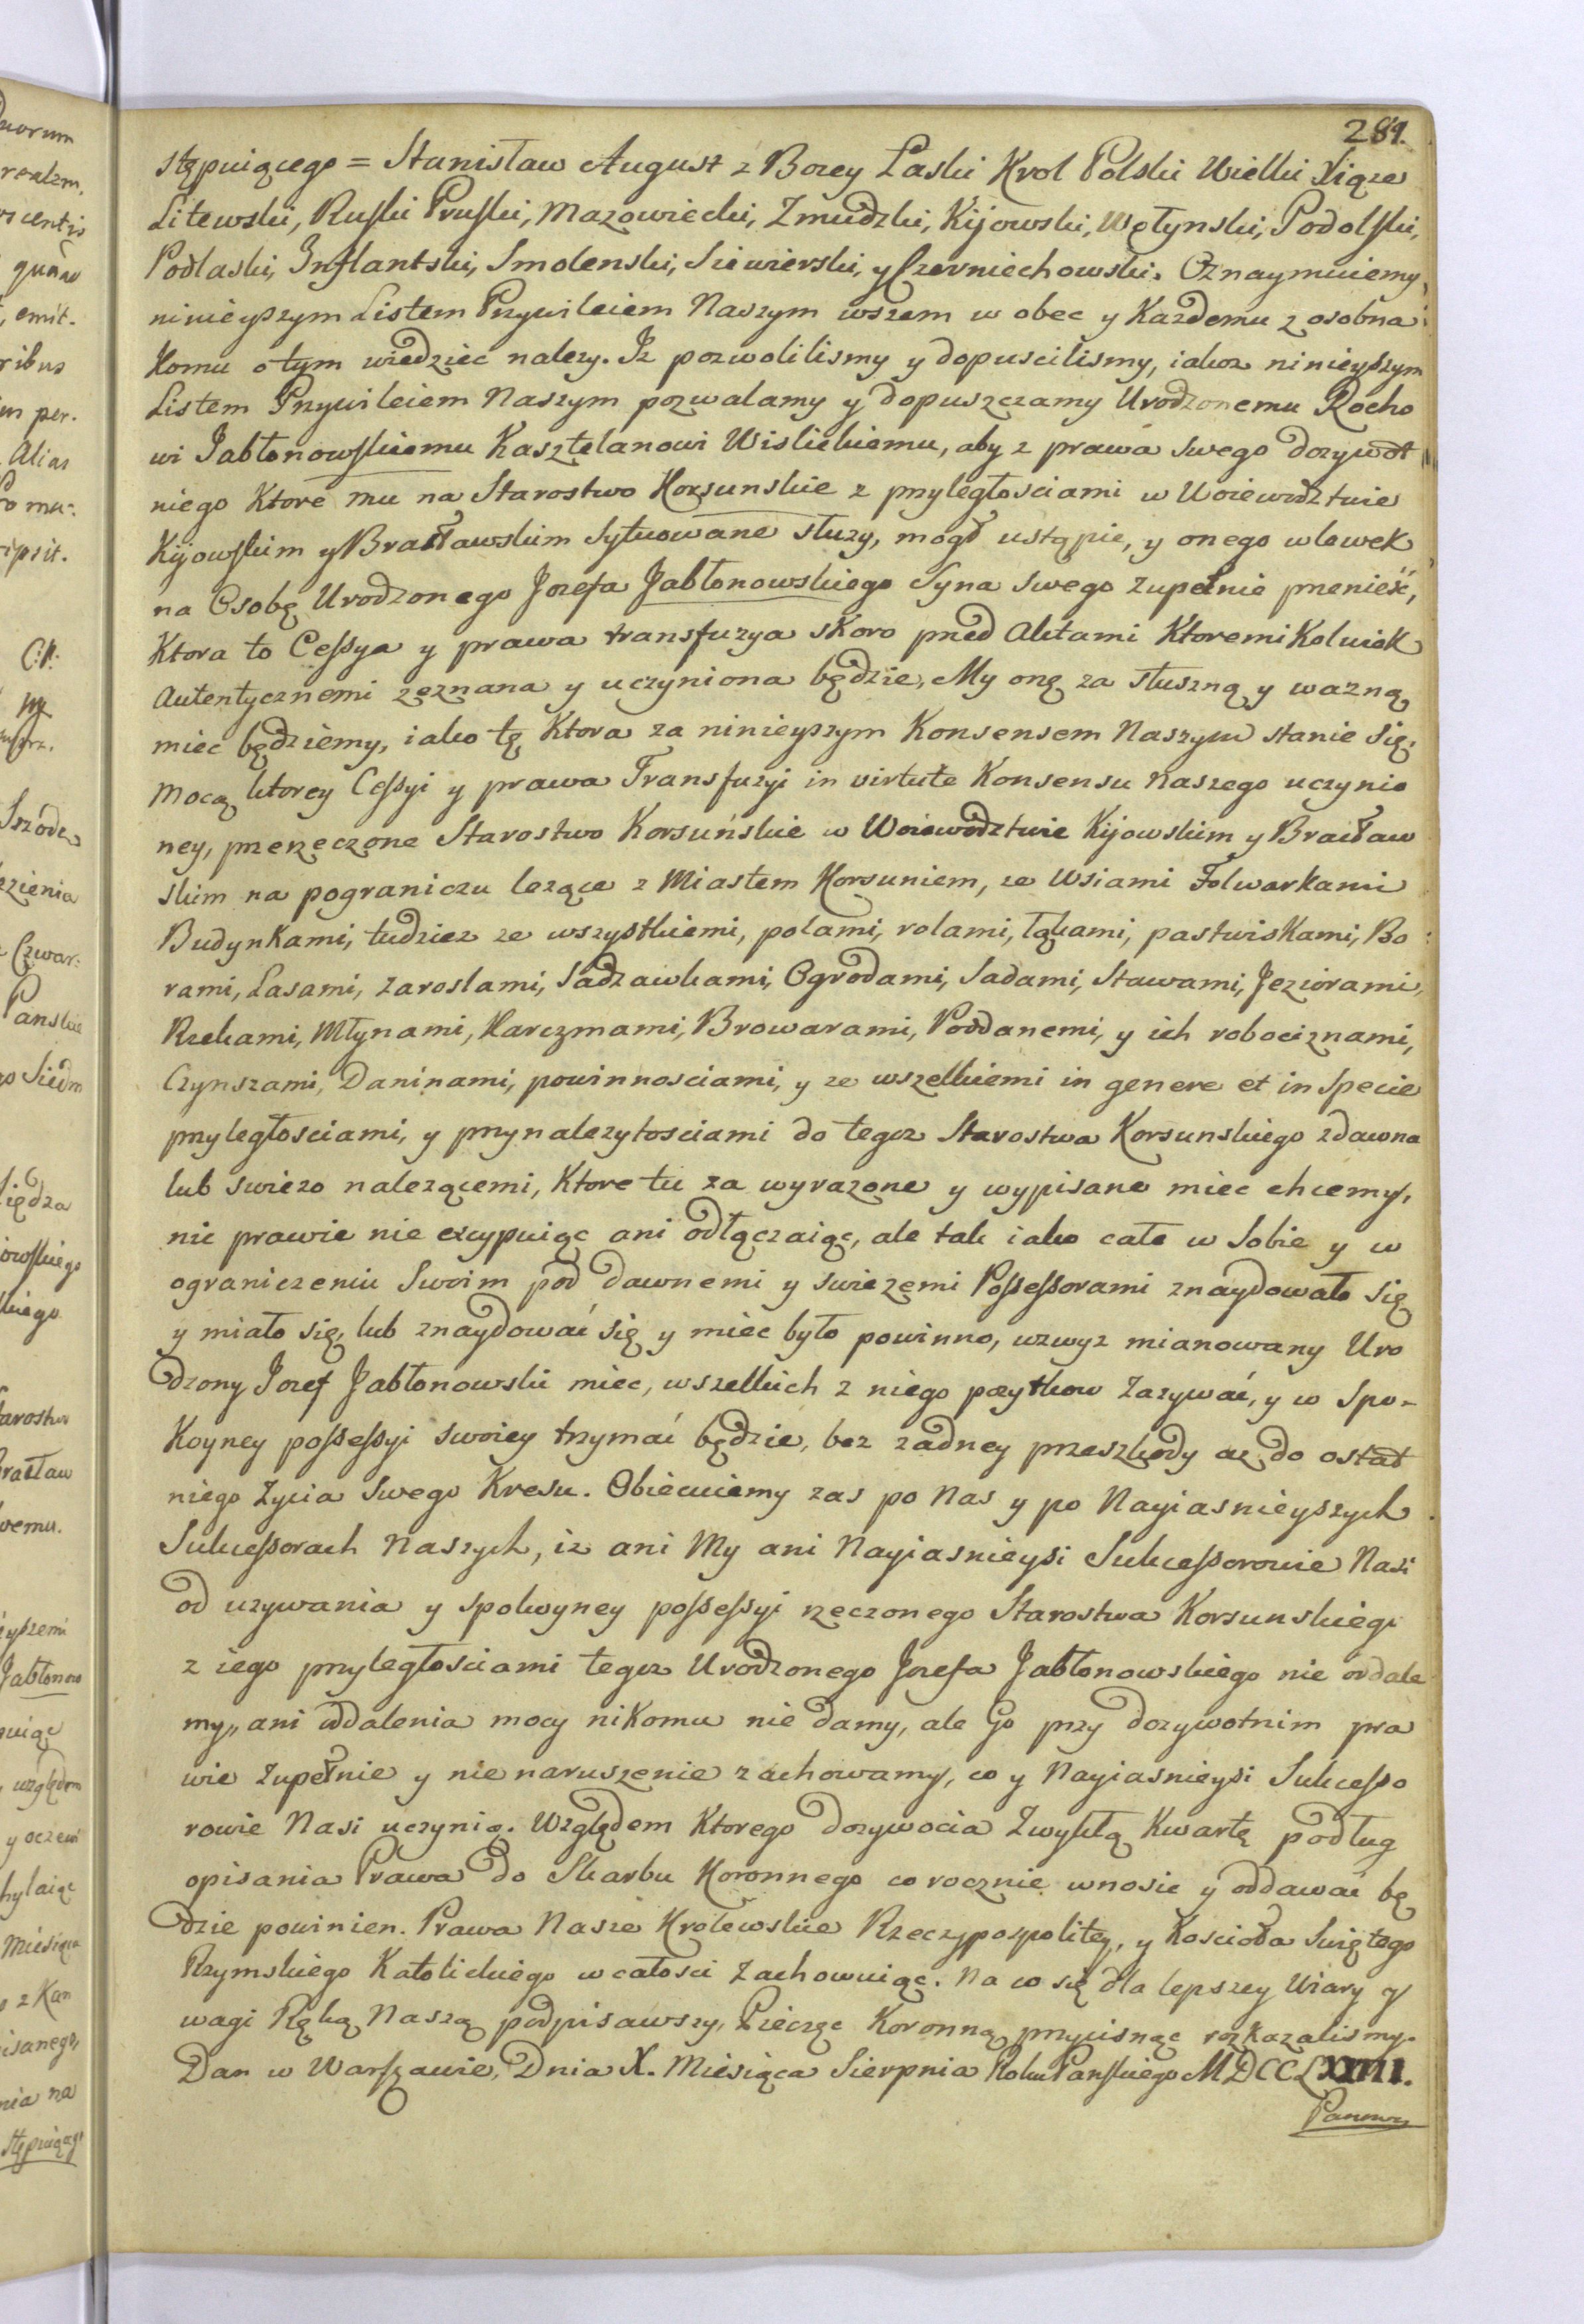 281.
stępuiącego = Stanisław August z Bozey Łaski Krol Polski Wielki Xiąze
Litewski, Ruski Pruski, Mazowiecki, Zmudzki, Kijowski, Wołynski, Podolski,
Podlaski, Inflantski, Smolenski, Siewierski, y Czerniechowski. Oznaymuiemy
ninieyszym Listem Przywileiem Naszym wszem w obec y Kazdemu z osobna
Komu o tym wiedziec nalezy. Iz pozwolilismy y dopuscilismy, iakoz ninieyszym
Listem Przywileiem Naszym pozwalamy y dopuszczamy Urodzonemu Rocho
wi Jabłonowskiemu Kasztelanowi Wislickiemu, aby z prawa swego dozywot
niego Ktore mu na Starostwo Korsunskie z przyległosciami w Woiewodztwie
Kijowskim y Bracławskim sytuowane słuzy, mogł ustąpic, y onego wlewek
na Osobę Urodzonego Jozefa Jabłonowskiego Syna swego zupełnie przenieść,
Ktora to Cessya y prawa transfuzya skoro przed Aktami Ktoremi Kolwiek
Autentycznemi zeznana y uczyniona będzie, My onę za słuszną y wazną
miec będziemy, iako tę Ktora za ninieyszym Konsensem Naszym stanie się.
Mocą ktorey Cessyi y prawa Transfuzyi in virtute Konsensu Naszego uczynio
ney, przerzeczone Starostwo Korsuńskie w Woiewodztwie Kijowskim y Bracław
skim na pograniczu lezące z Miastem Korsuniem, ze Wsiami Folwarkami
Budynkami, tudziez ze wszystkiemi, polami, rolami, łąkami, pastwiskami, Bo
rami, Lasami, zaroslami, Sadzawkami, Ogrodami, Sadami, Stawami, Jeziorami,
Rzekami, Młynami, Karczmami, Browarami, Poddanemi, y ich robociznami,
Czynszami, Daninami, powinnosciami, y ze wszelkiemi in genere et in specie
przyległosciami, y przynalezytosciami do tegoz Starostwa Korsunskiego zdawna
lub swiezo nalezącemi, Ktore tu za wyrazone y wypisane miec chcemy,
nic prawie nie excypuiąc ani odłączaiąc, ale tak iako całe w Sobie y w
ograniczeniu Swoim pod dawnemi y swiezemi Possessorami znaydowało się
y miało się, lub znaydowac się y miec było powinno, wzwyz mianowany Uro
dzony Jozef Jabłonowski miec, wszelkich z niego pozytkow zazywać, y w Spo-
Koyney possessyi swoiey trzymać będzie, bez zadney przeszkody az do ostat
niego zycia Swego Kresu. Obiecuiemy zas po Nas y po Nayiasnieyszych
Sukcessorach Naszych, iz ani My ani Nayiasnieysi Sukcessorowie Nasi
od uzywania y spokoyney possessyi rzeczonego Starostwa Korsunskiego
z iego przyległosciami tegoz Urodzonego Jozefa Jabłonowskiego nie oddale
my, ani oddalenia mocy nikomu nie damy, ale Go przy dozywotnim pra
wie zupełnie y nienaruszenie zachowamy, co y Nayiasnieysi Sukcesso
rowie Nasi uczynią. Względem Ktorego dozywocia Zwykłą Kwartę podług
opisania Prawa do Skarbu Koronnego corocznie wnosic y oddawać bę
dzie powinien. Prawa Nasze Krolewskie Rzeczypospolitey, y Koscioła Swiętego
Rzymskiego Katolickiego w całosci zachowuiąc. Na co się dla lepszey Wiary y
wagi Ręką Naszą podpisawszy, Pieczęc Koronną przycisnąc rozkazalismy.
Dan w Warszawie, Dnia X. Miesiąca Sierpnia Roku Panskiego MDCCLXXIIII.